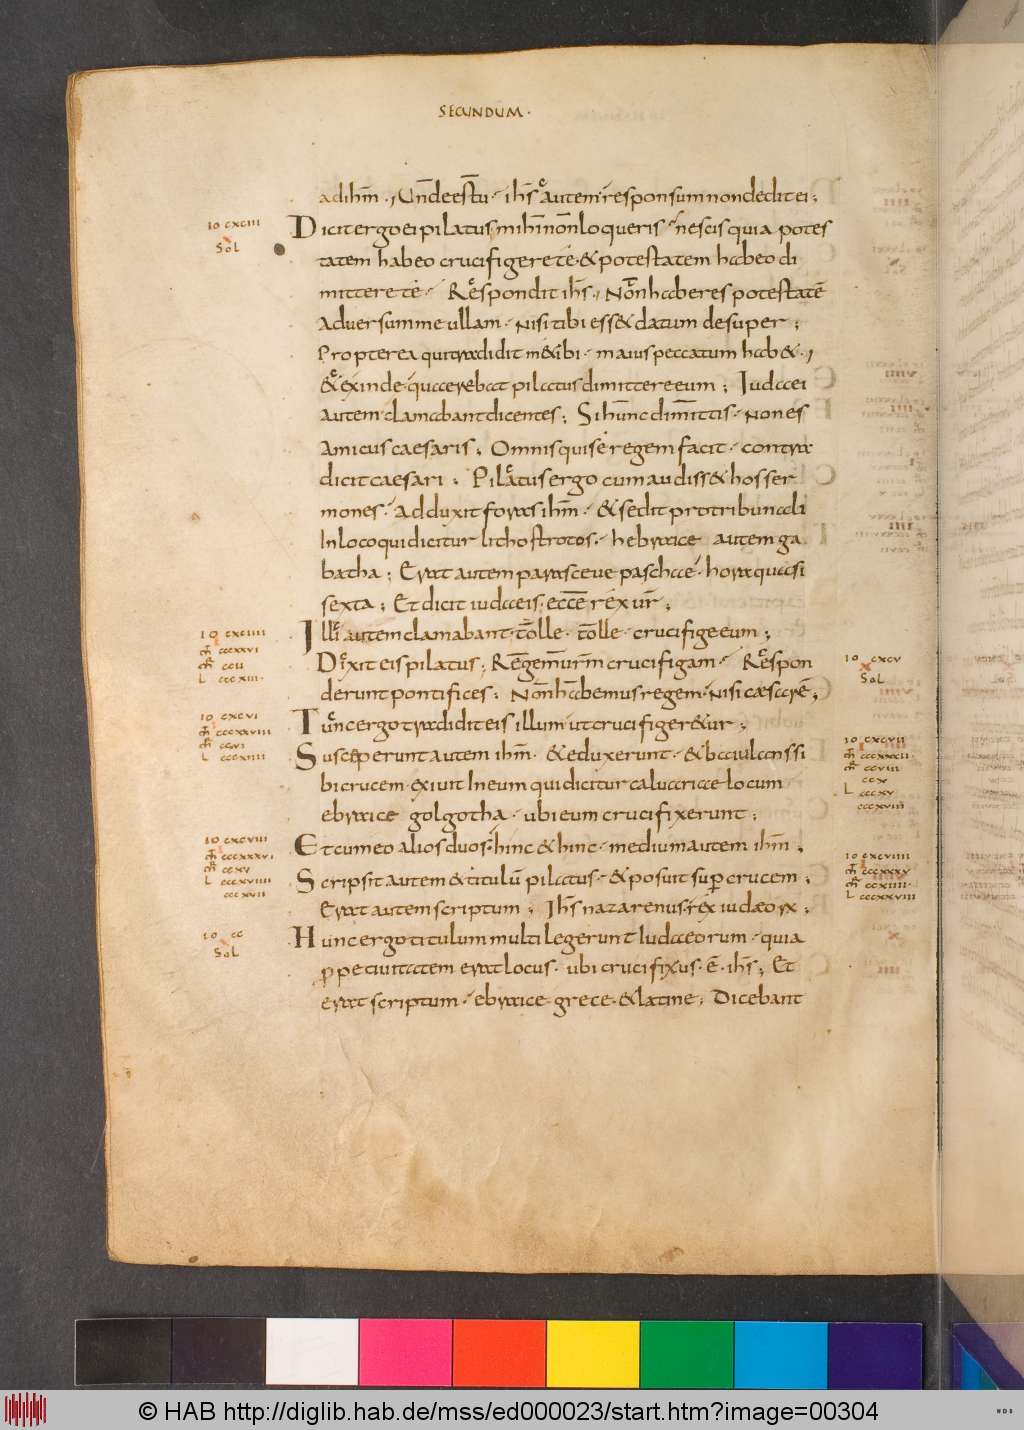 SECUNDUM·
ad ihm̅ · Unde es tu · ihs autem responsum non dedit ei ;
Dicit ergo ei pilatus mihi non loqueris · nescis quia potes
tatem habeo crucifigere te · & potestatem habeo di
mittere te · Respondit ihs̅ · Non haberes potestatē
adversum me ullam · nisi tibi ess& datum desuper ;
Propterea qui tradidit me tibi · maius peccatum hab& ·
& exinde quaerebat pilatus dimittere eum ; Iudaei
autem clamabant dicentes ; Si hunc dimittis · non es
amicus caesaris ; Omnis qui se regem facit · contra
dicit caesari ; Pilatus ergo cum audiss& hos ser
mones · adduxit foras ihm̅ · & sedit pro tribunali
In loco qui dicitur lithostrotos · hebraice autem ga
batha ; Erat autem parasceue paschae · hora quasi
sexta ; Et dicit iudaeis · ecce rex ur̅ ;
IO CXCIII
Sol
IO CXCIIII
m̅ CCCXXVI
m̅r CCU
L CCCXIII·
Illi autem clamabant · tolle · tolle · crucifige eum ;
Dixit eis pilatus ; Regem ur̅m crucifigam · Respon
derunt pontifices ; Non habemus regem · nisi caesarē ;
IO CXCV
Sol
IO CXCVI
m̅ CCCXXVIII
m̅r CCVI
L CCCXIIII
Tunc ergo tradidit eis illum ut crucifiger&ur ;
Susceperunt autem ihm̅ · & eduxerunt · & baiulans si
bi crucem exivit In eum qui dicitur calvariae locum
ebraice golgotha · ubi eum crucifixerunt ;
IO CXCVII
m̅ CCCXXXII
m̅r CCVIII
CCX
L CCCXV
CCCXVIII
IO CXCVIII
m̅ CCCXXXVI
m̅r CCXV
L CCCXVIIII
CCCXVII
Et cum eo alios duos · hinc & hinc · medium autem ihm̅ ;
Scripsit autem & titulū pilatus · & posuit super crucem ;
Erat autem scriptum ; Ihs̅ nazarenus · rex iudæorx ;
IO CXCVIIII
m̅ CCCXXXV
m̅r CCXIIII·
L CCCXXVIII
IO CC
Sol
Hunc ergo titulum multi legerunt Iudaeorum · quia
prope civitatem erat locus · ubi crucifixus · ē · ihs̅ ; Et
erat scriptum · ebraice · grece · & latine ; Dicebant
© HAB http://diglib.hab.de/mss/ed000023/start.htm?image=00304